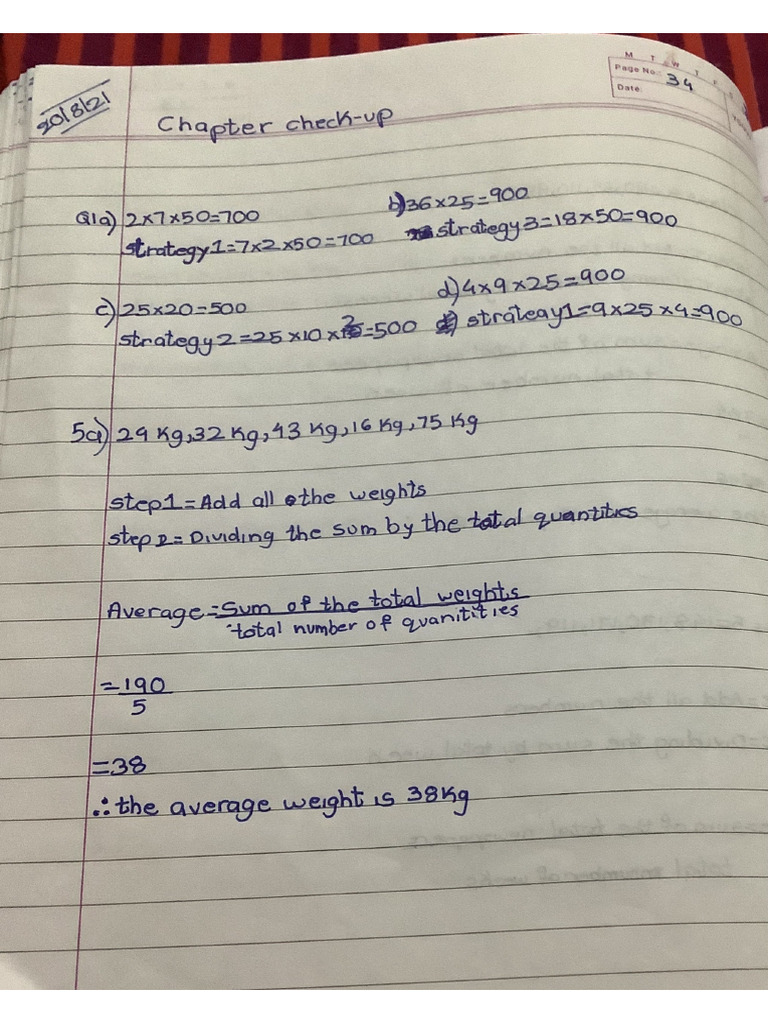 M T W T F S
Page No.: 34
Date:
20/8/21
Chapter check-up
Q1a) 2×7×50=700
strategy 1=7×2×50=700
b) 36×25=900
strategy 3=18×50=900
c) 25×20=500
strategy 2=25×10×2=500
d) 4×9×25=900
strateay 1=9×25×4=900
5a) 29 Kg, 32 Kg, 43 Kg, 16 Kg, 75 Kg
step 1=Add all the weights
step 2=Dividing the sum by the total quantities
Average=Sum of the total weights
total number of quanitities
=190
5
=38
∴ the average weight is 38Kg